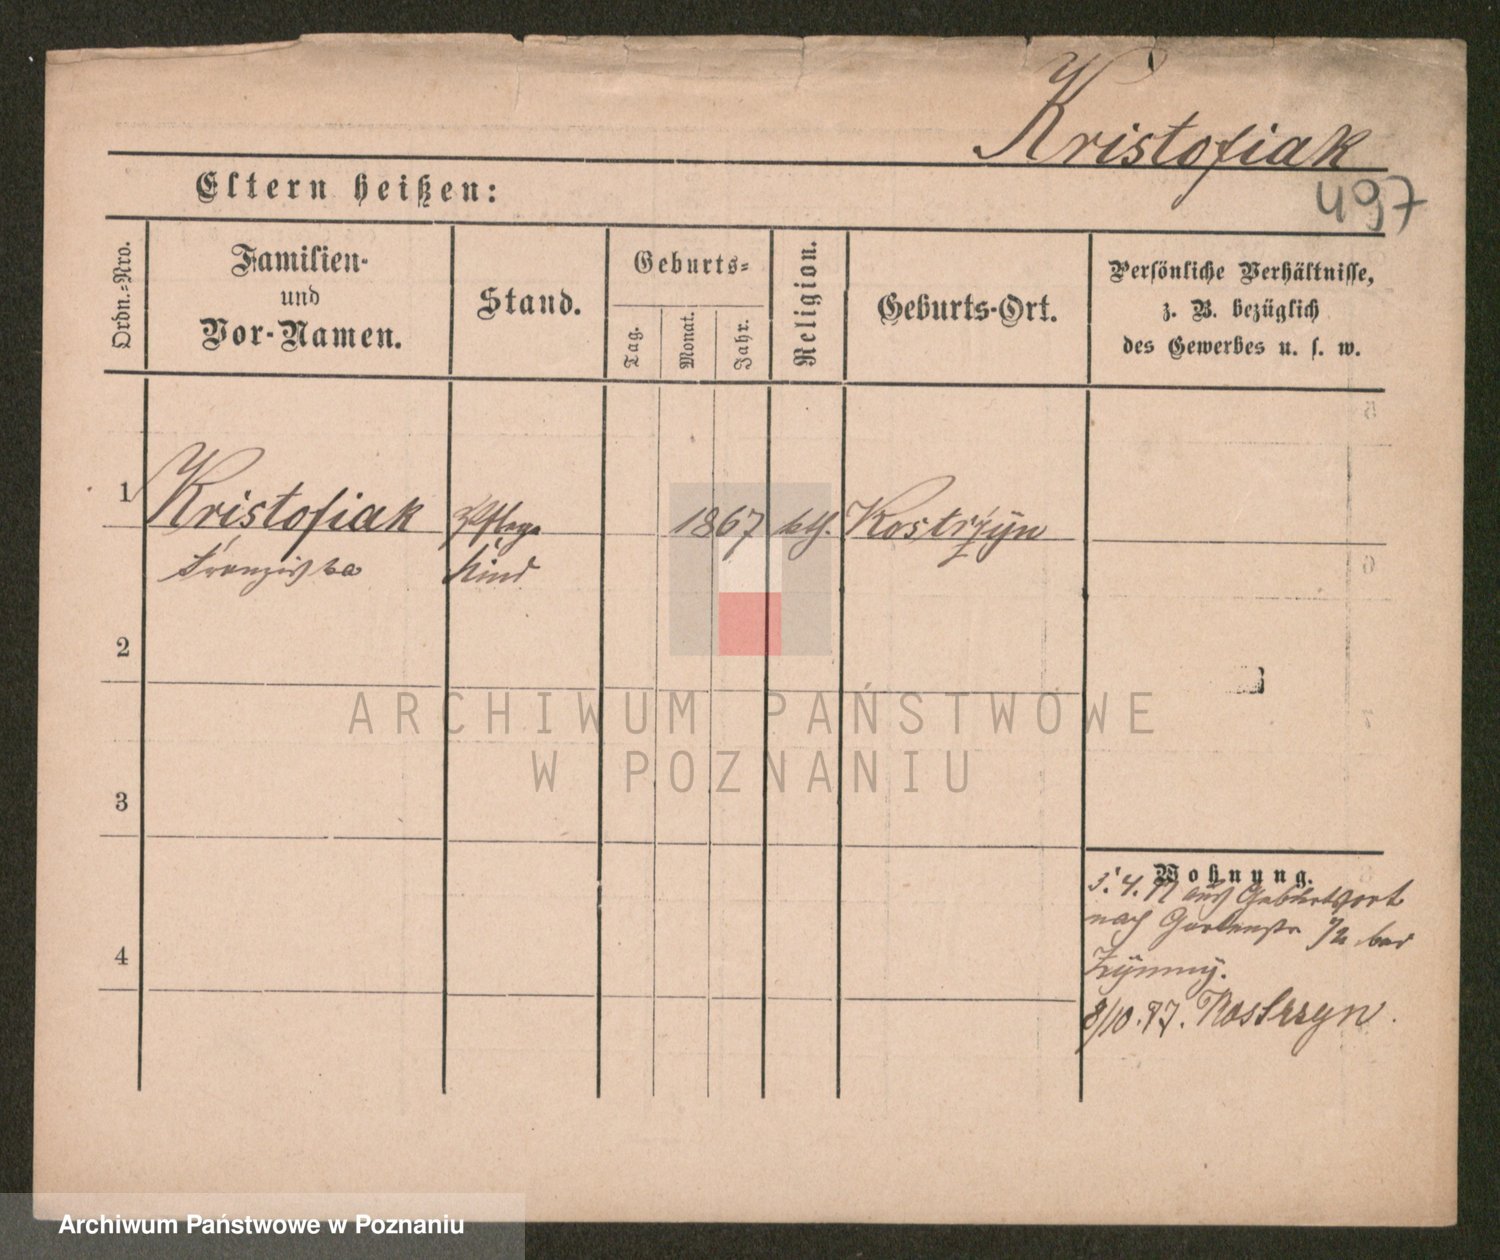 Kristofiak
497
Eltern heißen:
Ordn.-Nro.
Familien-
und
Vor-Namen.
Stand.
Geburts-
Tag.
Monat.
Jahr.
Religion.
Geburts-Ort.
Persönliche Verhältnisse,
z. B. bezüglich
des Gewerbes u. s. w.
1 Kristofiak Pflege 1867 kth. Kostrzyn
Franziska Kind
2
3
4
Wohnung.
5. 4. 77 aus Geburtsort
nach Gartenstr bei
8/10. 77. Kostrzyn.
ARCHIWUM PAŃSTWOWE
W POZNANIU
Archiwum Państwowe w Poznaniu